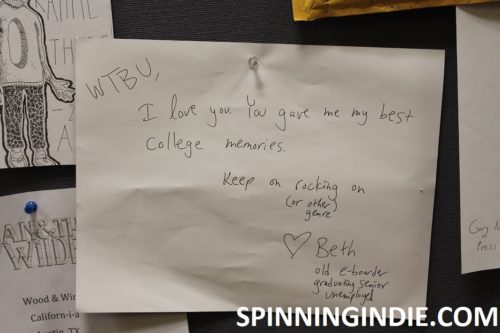 WTBU,
I love you. You gave me my best
college memories.
Keep on rocking on
(or other)
genre
♡ Beth
old e-boarder
graduating senior
unemployed
AN&TH
WIIDE
Wood & Wir
Californ-i-a
Austin, TX
Press
SPINNINGINDIE.COM